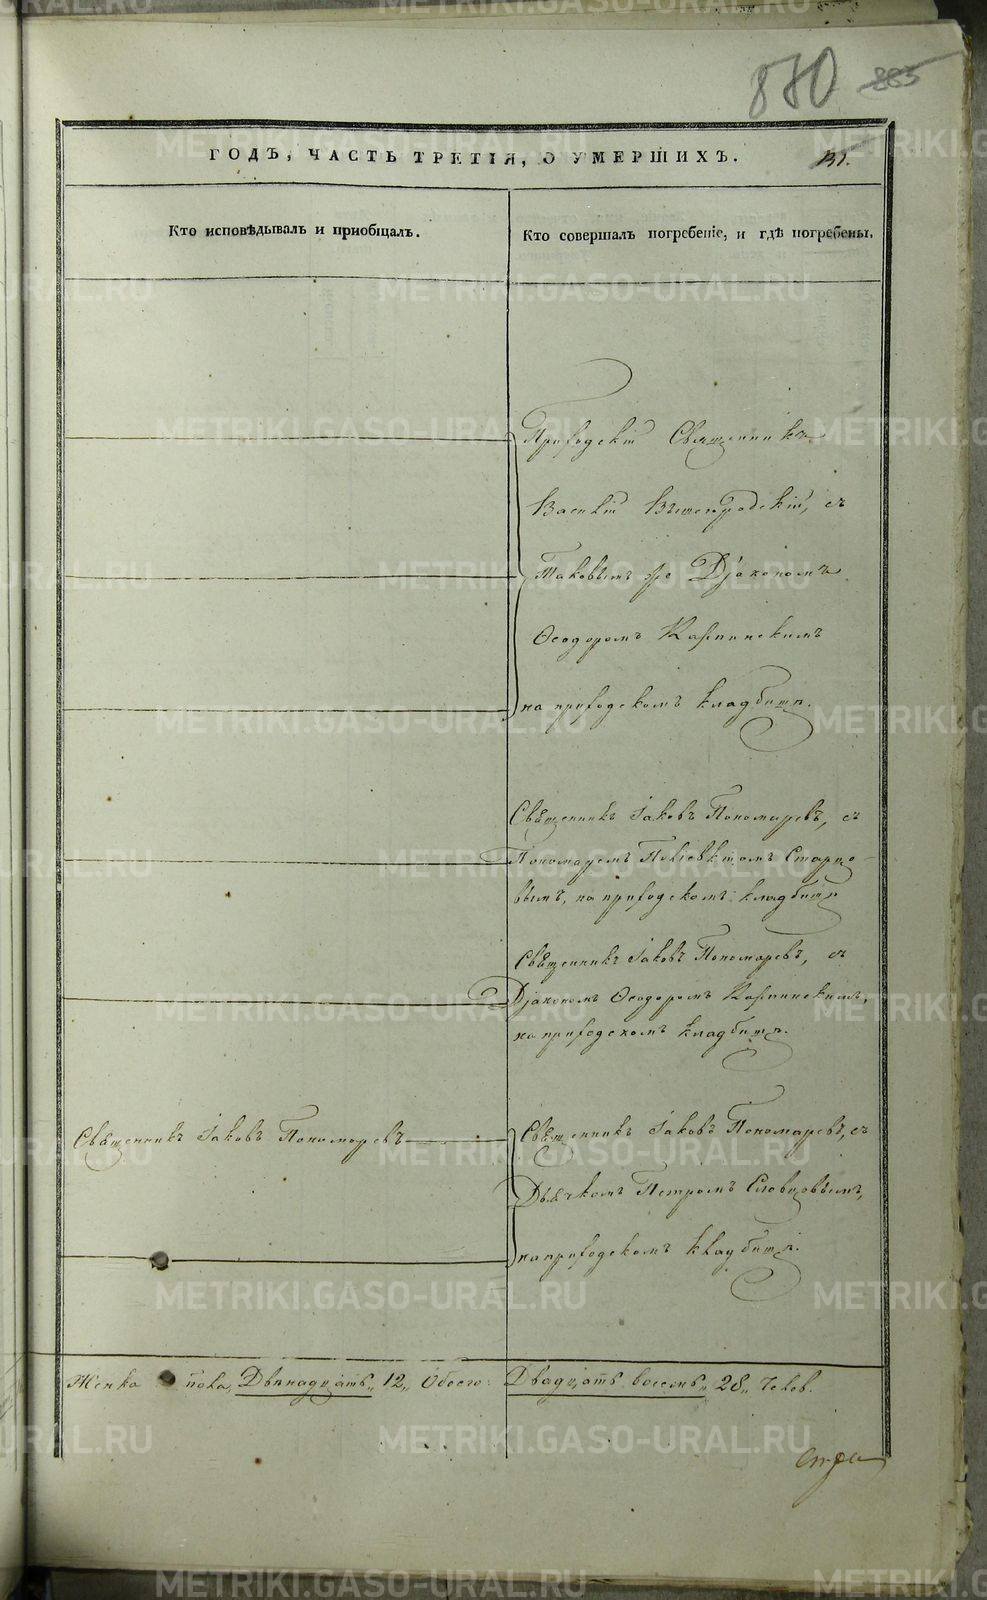 870 885
ГОДЪ, ЧАСТЬ ТРЕТІЯ, О УМЕРШИХЪ.
Кто исповѣдывалъ и пріобщалъ.
Кто совершалъ погребеніе, и гдѣ погребены.
Приходскій Священникъ
Василій Вышегородскій, съ
таковымъ же Діякономъ
Ѳеодоромъ Капминскимъ
на приходскомъ кладбищѣ.
Священникъ Іаковъ Пономаревъ, съ
Пономаремъ Поліевктомъ Старцо-
вымъ, на приходскомъ кладбищѣ
Священникъ Іаковъ Пономаревъ, съ
Діякономъ Ѳеодоромъ Капминскимъ,
на приходскомъ кладбищѣ.
Священникъ Іаковъ Пономаревъ
Священникъ Іаковъ Пономаревъ, съ
Дьячкомъ Петромъ Словцовымъ,
на приходскомъ кладбищѣ.
Женска пола, Двѣнадцать „ 12 „ Обоего: Двадцать восемь „ 28 „ Челов.
METRIKI.GASO-URAL.RU